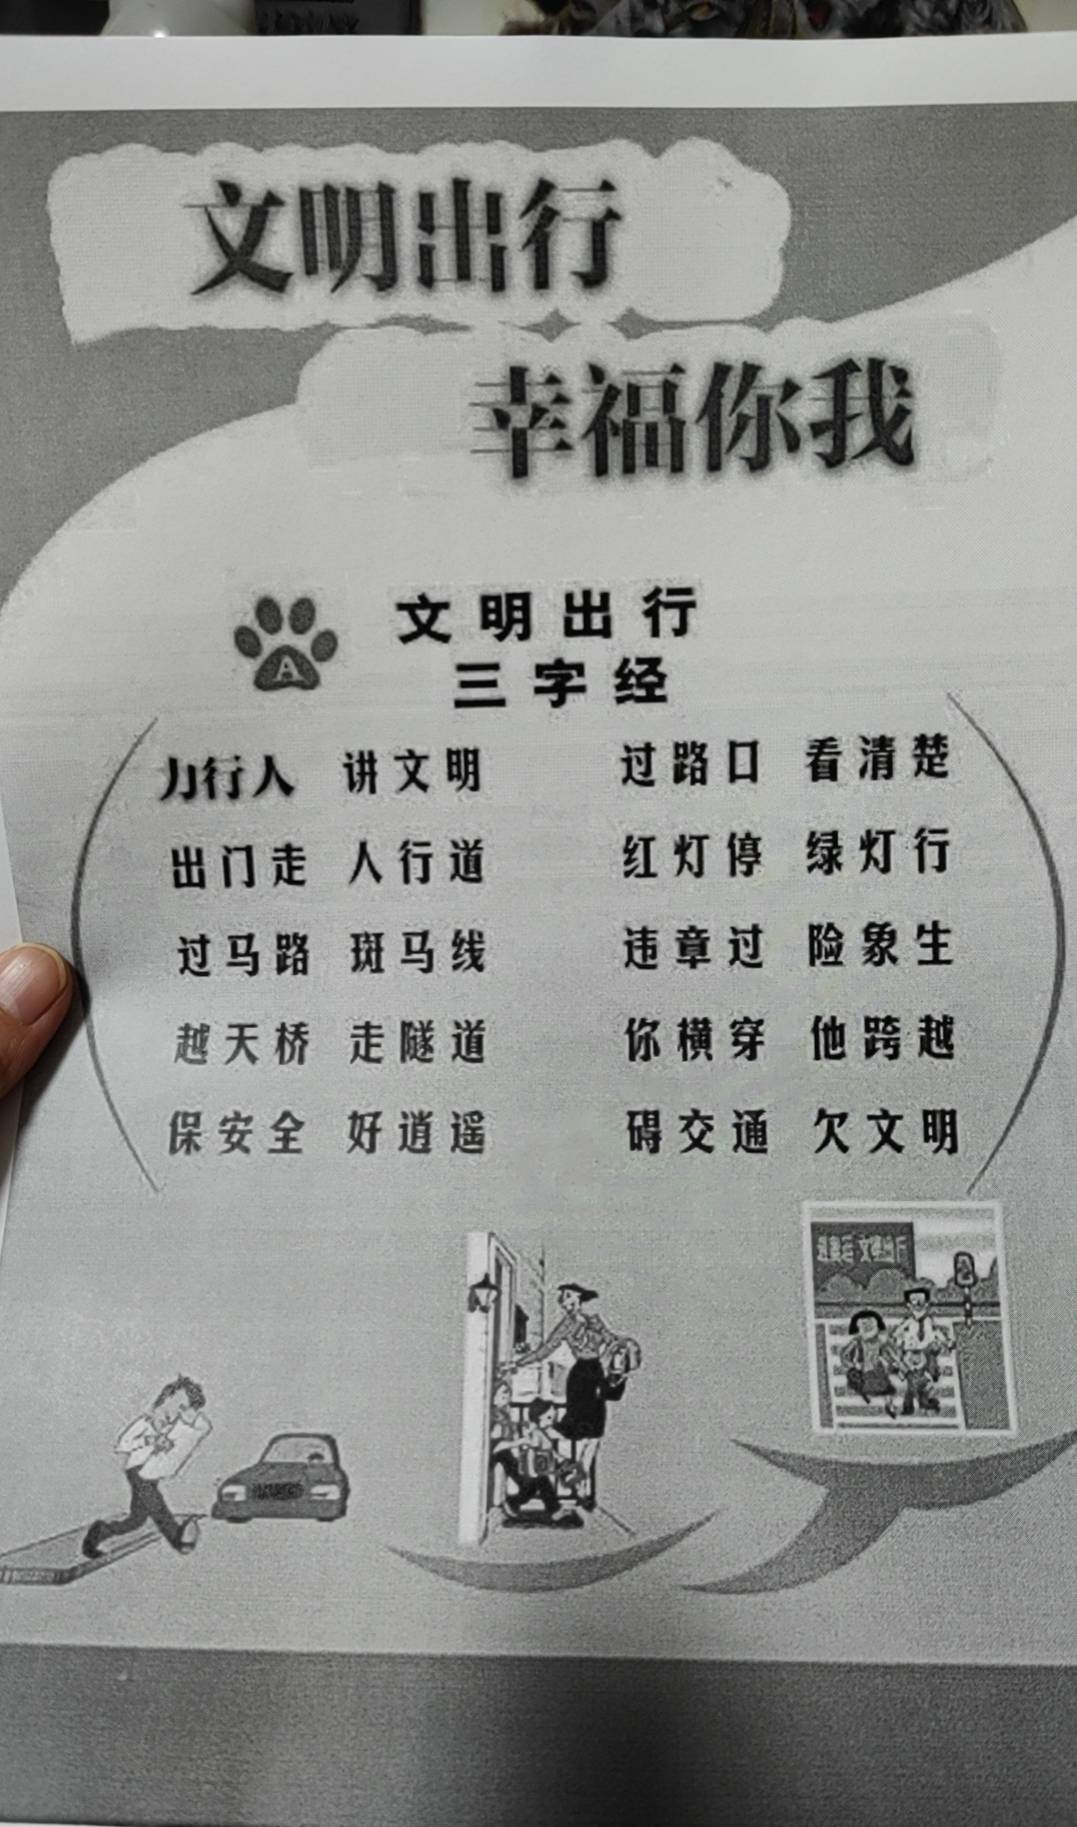 文明出行
幸福你我
A
文明出行
三字经
力行人 讲文明
出门走 人行道
过马路 斑马线
越天桥 走隧道
保安全 好逍遥
过路口 看清楚
红灯停 绿灯行
违章过 险象生
你横穿 他跨越
碍交通 欠文明